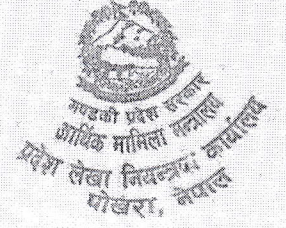 गण्डकी प्रदेश सरकार
आर्थिक मामिला मन्त्रालय
प्रदेश लेखा नियन्त्रण कार्यालय
पोखरा, नेपाल